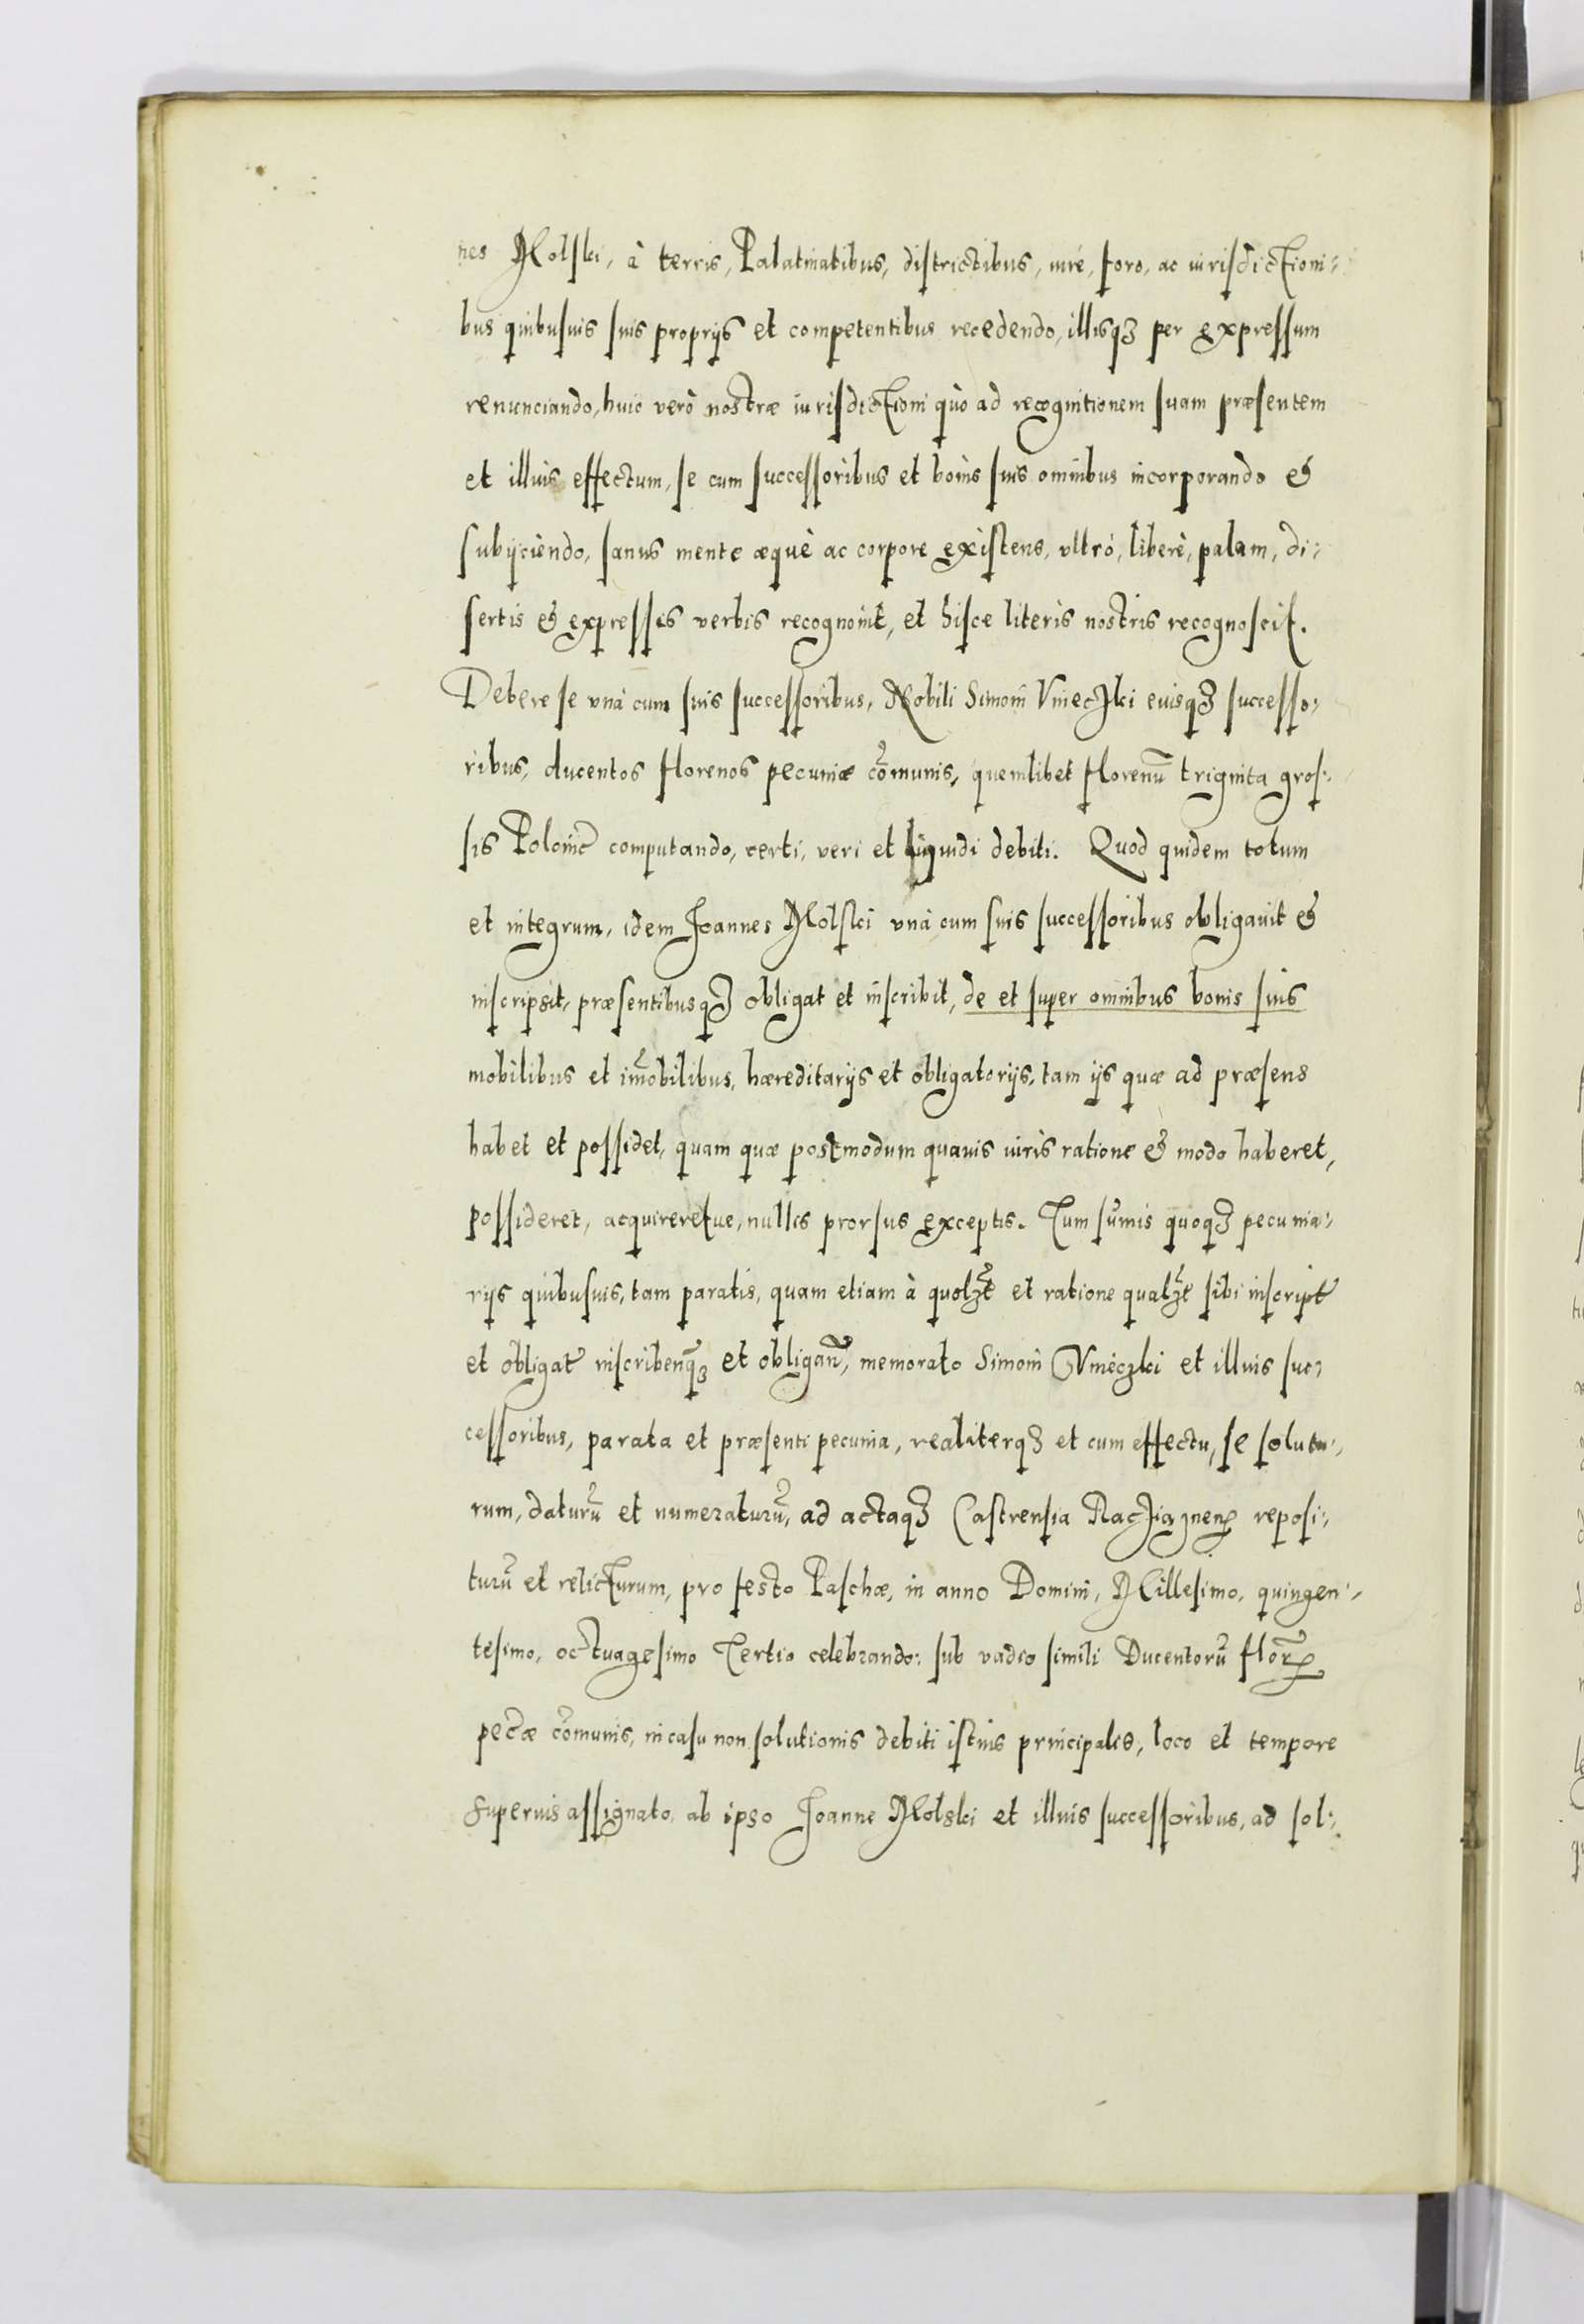 nes Molski, à terris, Palatinatibus, districtibus, iure, foro, ac iurisdictioni-
bus quibusuis suis proprijs et competentibus recedendo, illisqꝫ per expressum
renunciando, huic verò nostræ iurisdictioni quò ad recognitionem suam præsentem
et illius effectum, se cum successoribus et bonis suis omnibus incorporando &
subijciendo, sanus mente æquè ac corpore existens, vltrò, liberè, palam, di-
sertis & expressis verbis recognouit, et hisce literis nostris recognoscit.
Debere se vnà cum suis successoribus, Nobili Simoni Vnieczki eiusqꝫ successo-
ribus, ducentos florenos pecuniæ cōmunis, quemlibet florenū triginta gros-
sis Polonic̄ computando, certi, veri et liquidi debiti. Quod quidem totum
et integrum, idem Joannes Molski vnà cum suis successoribus obligauit &
inscripsit, præsentibusqꝫ obligat et inscribit, de et super omnibus bonis suis
mobilibus et im̄obilibus, hæreditarijs et obligatorijs, tam ijs quæ ad præsens
habet et possidet, quam quæ postmodum quauis iuris ratione & modo haberet,
possideret, acquireretue, nullis prorsus exceptis. Tum sūmis quoqꝫ pecunia-
rijs quibusuis, tam paratis, quam etiam à quolꝫt et ratione qualꝫt sibi inscript̄
et obligat̄ inscribenqꝫ et obligan̄, memorato Simoni Vnieczki et illius suc-
cessoribus, parata et præsenti pecunia, realiterqꝫ et cum effectu, se solutu-
rum, daturū et numeraturū, ad actaqꝫ Castrensia reposi-
turū et relicturum, pro festo Paschæ, in anno Domini, Millesimo, quingen-
tesimo, octuagesimo Tertio celebrando: sub vadio simili Ducentorū flor̄
pec̄æ cōmunis, in casu non solutionis debiti istius principalis, loco et tempore
superius assignato, ab ipso Joanne Molski et illius successoribus, ad sol-